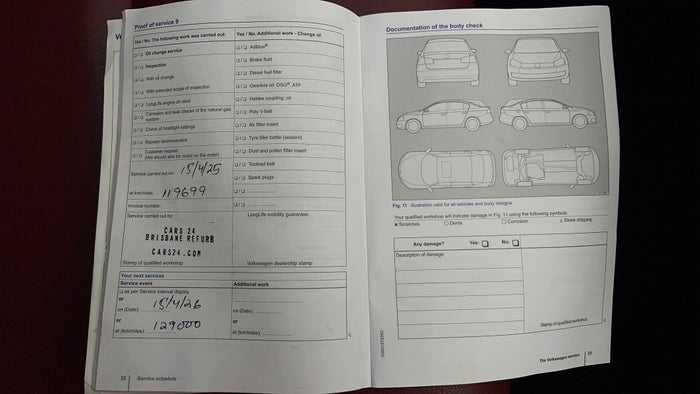 Proof of service 9
Yes / No. The following work was carried out:
Oil change service
Inspection
With oil change
With extended scope of inspection
LongLife engine oil used
Corrosion and leak checks of the natural gas
system
Check of headlight settings
Repairs recommended
Customer request
(this should also be noted on the order)
Service carried out on: 15/4/25
at km/miles: 119699
Invoice number:
Service carried out by:
CARS 24
BRISBANE REFURB
CARS24.COM
Stamp of qualified workshop
Yes / No. Additional work - Change of:
AdBlue®
Brake fluid
Diesel fuel filter
Gearbox oil: DSG®, ATF
Haldex coupling: oil
Poly V-belt
Air filter insert
Tyre filler bottle (sealant)
Dust and pollen filter insert
Toothed belt
Spark plugs
LongLife mobility guarantee:
Volkswagen dealership stamp
Your next services
Service event
as per Service interval display
or
on (Date): 15/4/26
or
at (km/miles): 129000
Additional work
on (Date):
or
at (km/miles):
22 Service schedule
Documentation of the body check
Fig. 11 Illustration valid for all vehicles and body designs.
Your qualified workshop will indicate damage in Fig. 11 using the following symbols:
× Scratches ○ Dents □ Corrosion △ Stone chipping
Any damage? Yes: No:
Description of damage:
Stamp of qualified workshop
The Volkswagen service 23